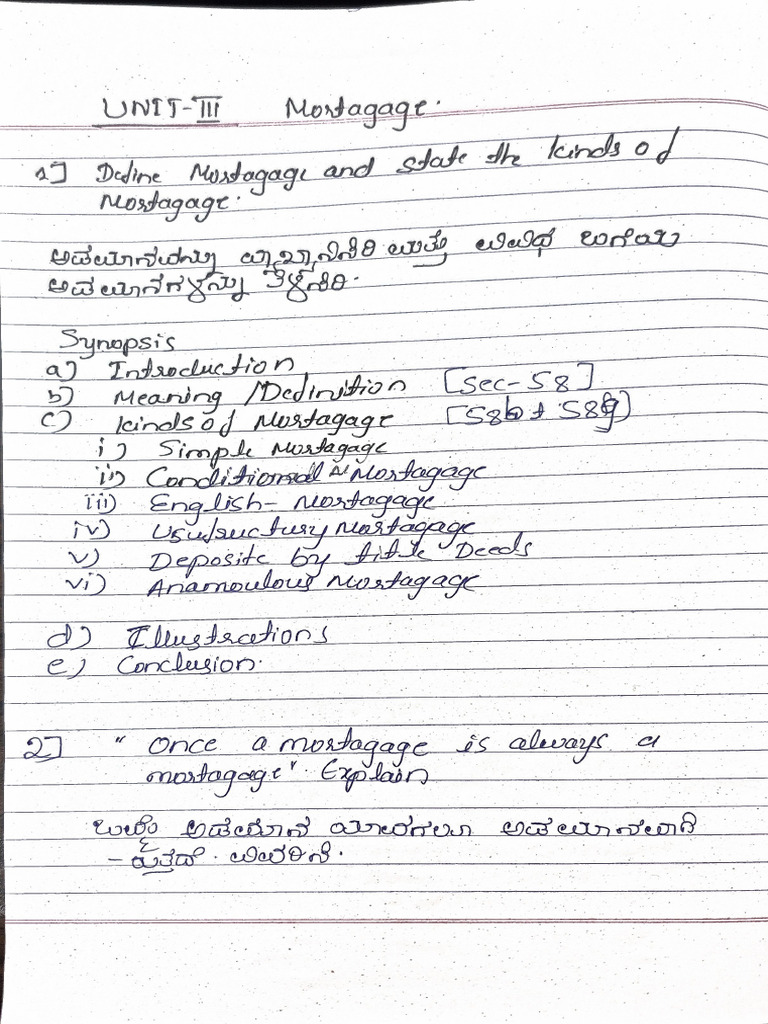 UNIT-III Mortagage.
1] Define Mortagage and state the kinds of
Mortagage.
ಅಡಮಾನವನ್ನು ವ್ಯಾಖ್ಯಾನಿಸಿರಿ ಮತ್ತು ವಿವಿಧ ಬಗೆಯ
ಅಡಮಾನಗಳನ್ನು ತಿಳಿಸಿರಿ.
Synopsis
a) Introduction
b) Meaning /Definition [Sec-58]
c) Kinds of Mortagage [58b t 58g)
i) Simple Mortagage
ii) Conditional Mortagage
iii) English- Mortagage
iv) Usufructury Mortagage
v) Deposite by title Deeds
vi) Anamoulous Mortagage
d) Illustrations
e) Conclusion.
2] "Once a mortagage is always a
mortagage". Explain
ಒಮ್ಮೆ ಅಡಮಾನ ಯಾವಾಗಲೂ ಅಡಮಾನವಾಗಿ
ವಿವರಿಸಿ.